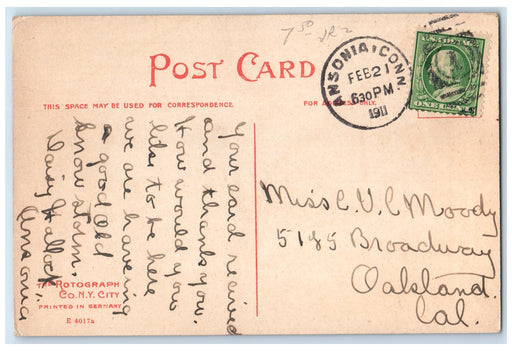 7 50
JR 2
POST CARD
THIS SPACE MAY BE USED FOR CORRESPONDENCE.
FOR ADDRESS ONLY.
ANSONIA, CONN.
FEB 21
630 PM
1911
ONE CENT
Your card recived
and thanks you.
How would you
like to be here
we are havering
a good old
snow storm.
Daisy Hallock
Ansonia
Miss C. V. C Moody
5185 Broadway
Oakland.
Cal.
THE ROTOGRAPH
CO. N.Y. CITY
PRINTED IN GERMANY
E 4017a